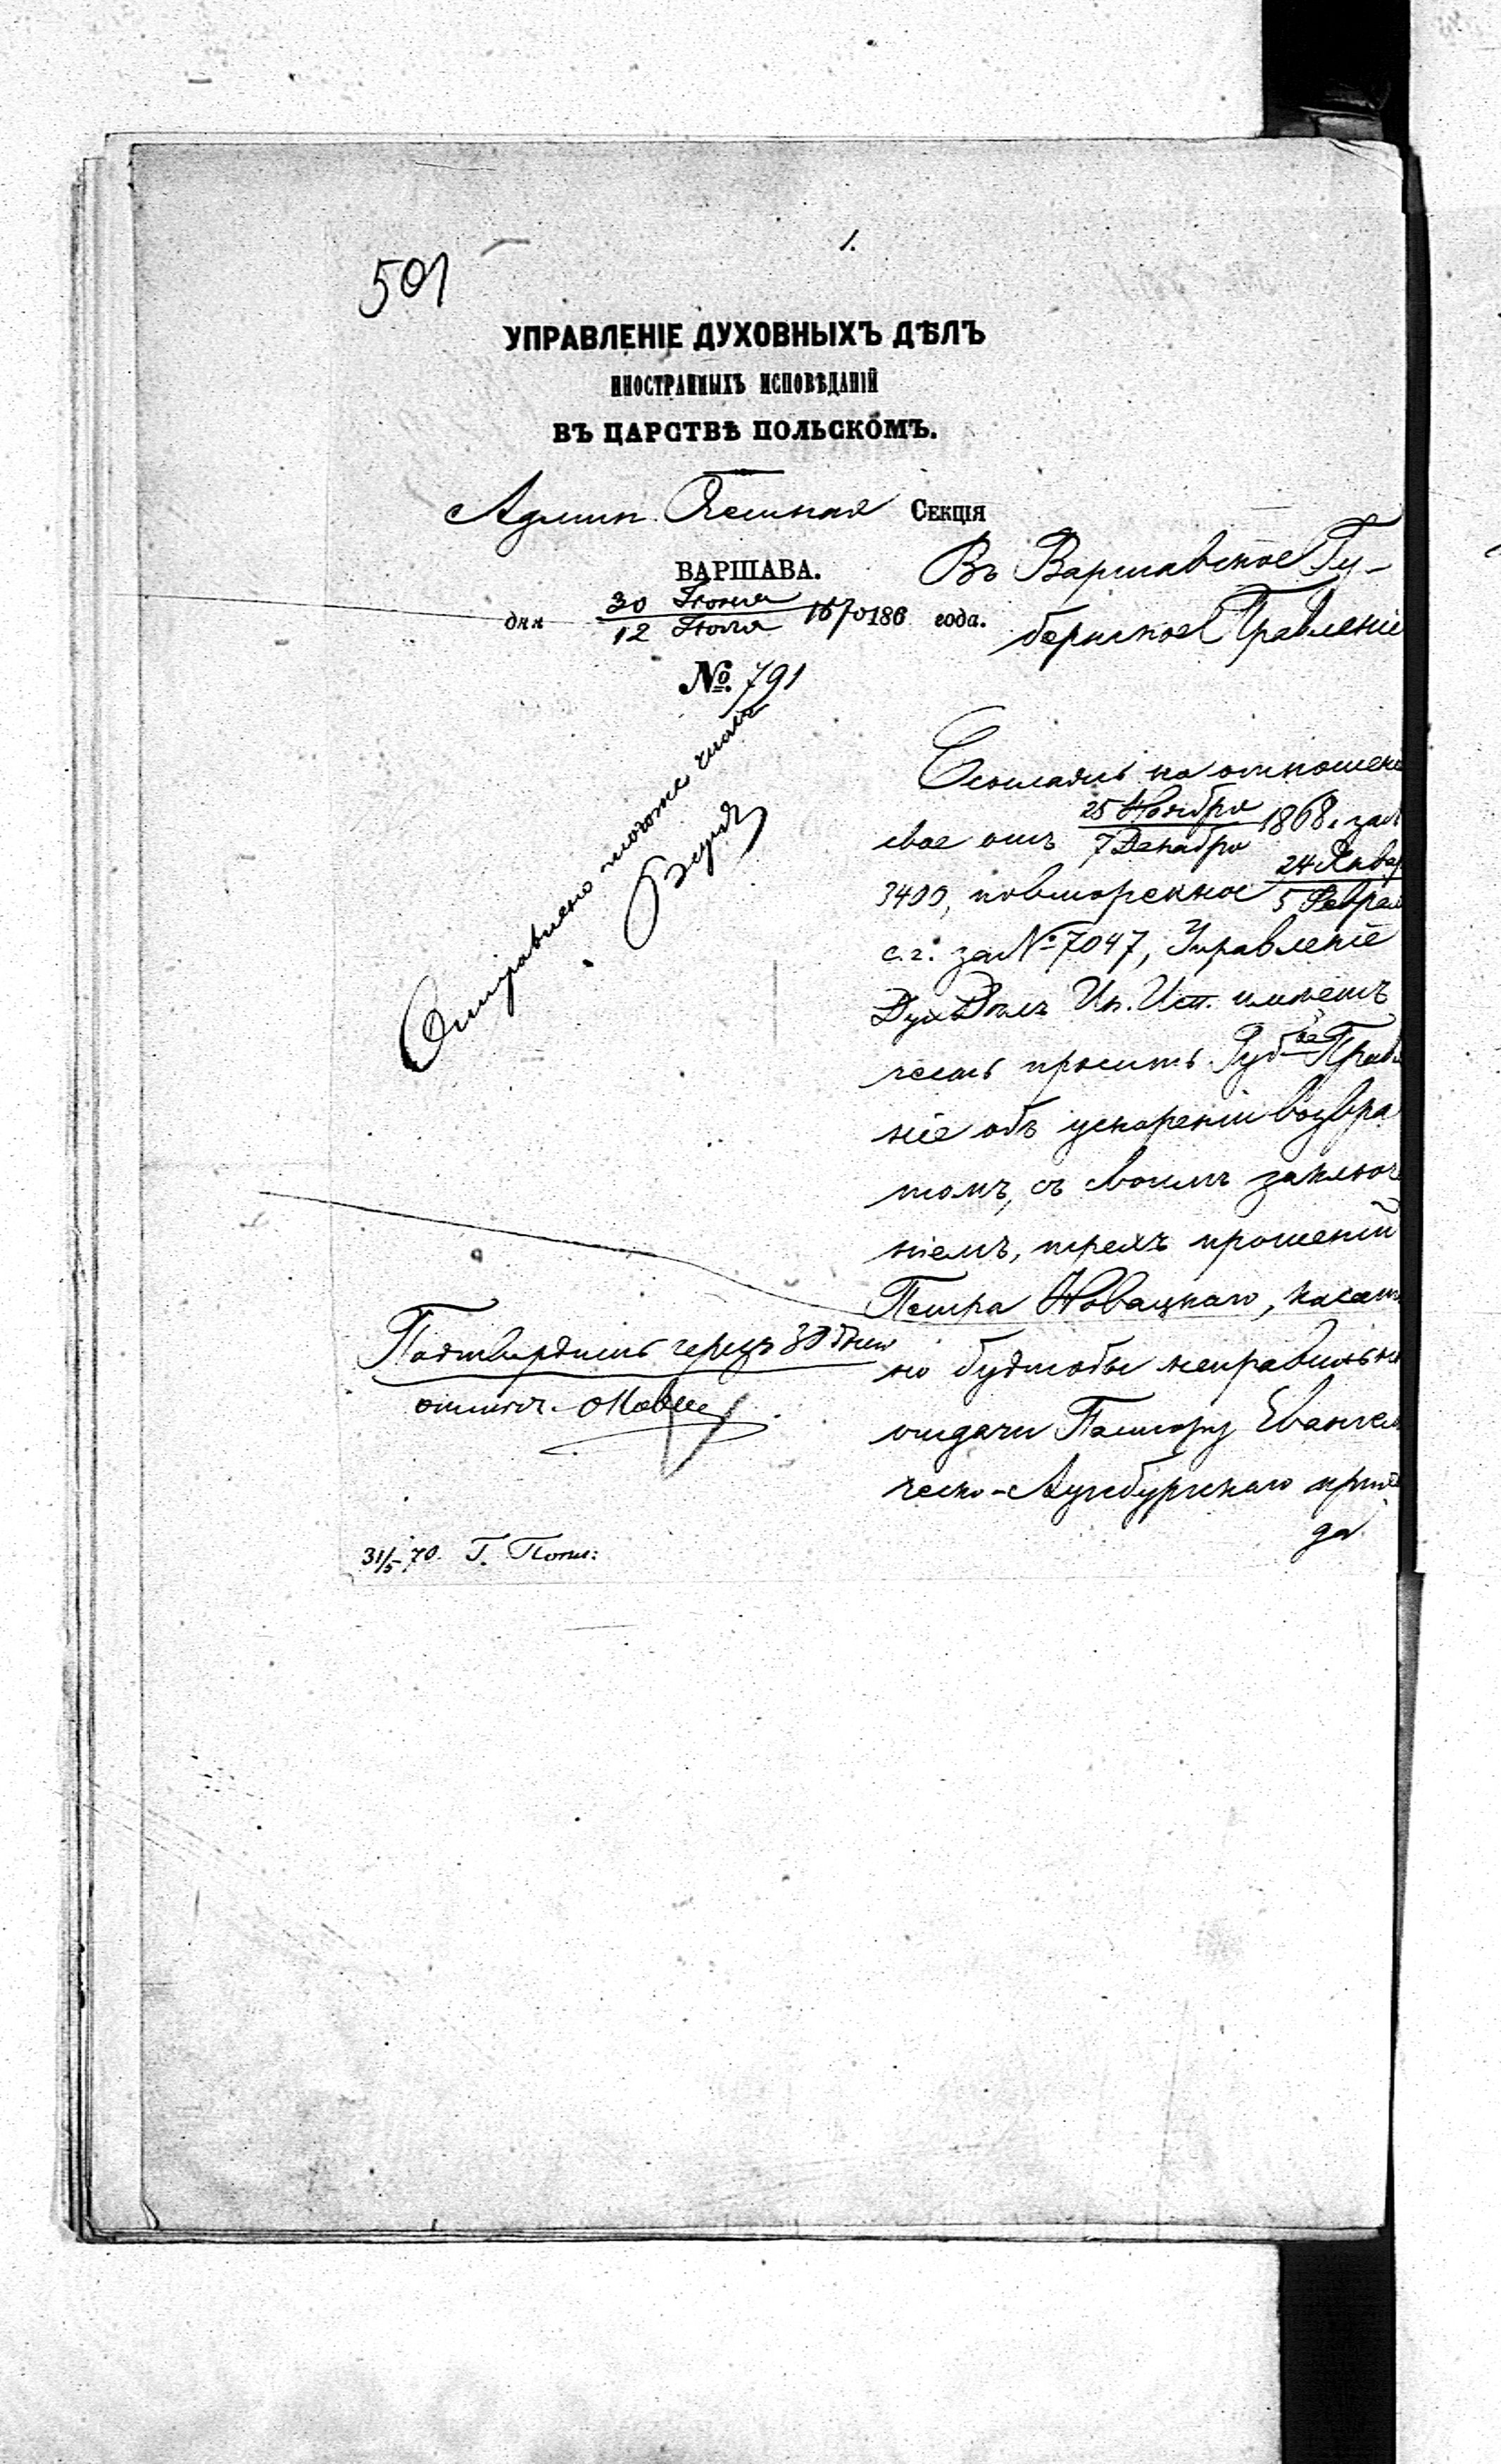 1.
501
УПРАВЛЕНІЕ ДУХОВНЫХЪ ДѢЛЪ
ИНОСТРАННЫХЪ ИСПОВѢДАНІЙ
ВЪ ЦАРСТВѢ ПОЛЬСКОМЪ.
Админ. Секція
ВАРШАВА.
дня 30 Іюня / 12 Іюля 1870 186 года.
№ 791
Въ Варшавское Гу-
бернское Правленіе
Ссылаясь на отношені
свое отъ 25 Ноября / 7 Декабря 1868 г. за №
3400, повторенное 24 Янва / 5 Феврал
с. г. за № 7047, Управленіе
Дух. Дѣлъ Ин. Исп. имѣетъ
честь просить Губ-ое Правле
ніе объ ускореніи возвра
томъ, съ своимъ заключе
ніемъ, трехъ прошеній
Петра Новацкаго, касат
но будтобы неправильно
отдачи Пастору Евангел
ческо-Аугсбургскаго прихо
да
Отправлено тогоже числа
Подтвердить черезъ 30 дней
31/5 70. Г.